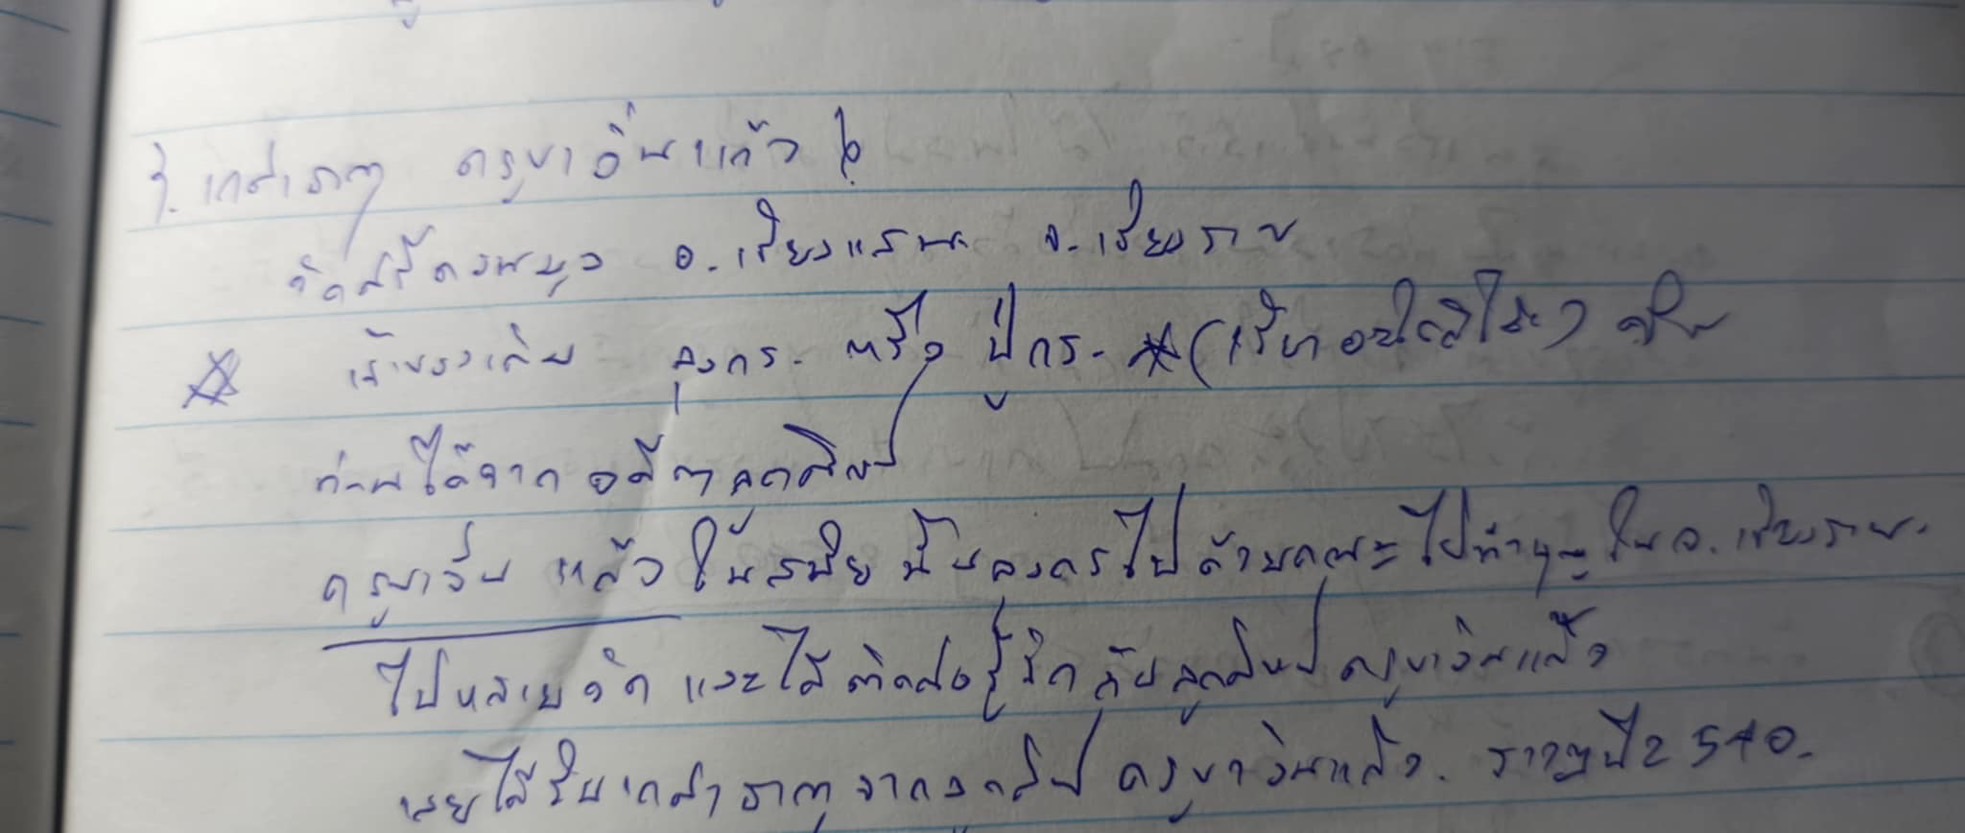 เกสาธาตุ ครูบาอินแก้ว
วัดศรีดอนมูล อ.เชียงแสน จ.เชียงราย
เจ้าของเดิม ลุงกร. หรือ ปู่กร.
ท่านได้จาก อดีตลูกศิษย์
ครูบาอินแก้ว ในสมัยนั้นลุงกรไปด้วยคณะไปทำบุญ ใน จ.เชียงราย.
ไปหลายวัด และได้ติดต่อรู้จัก กับลูกศิษย์ ครูบาอินแก้ว
เลยได้รับเกสาธาตุจากลูกศิษย์ ครูบาอินแก้ว. ราวๆปี 2540.